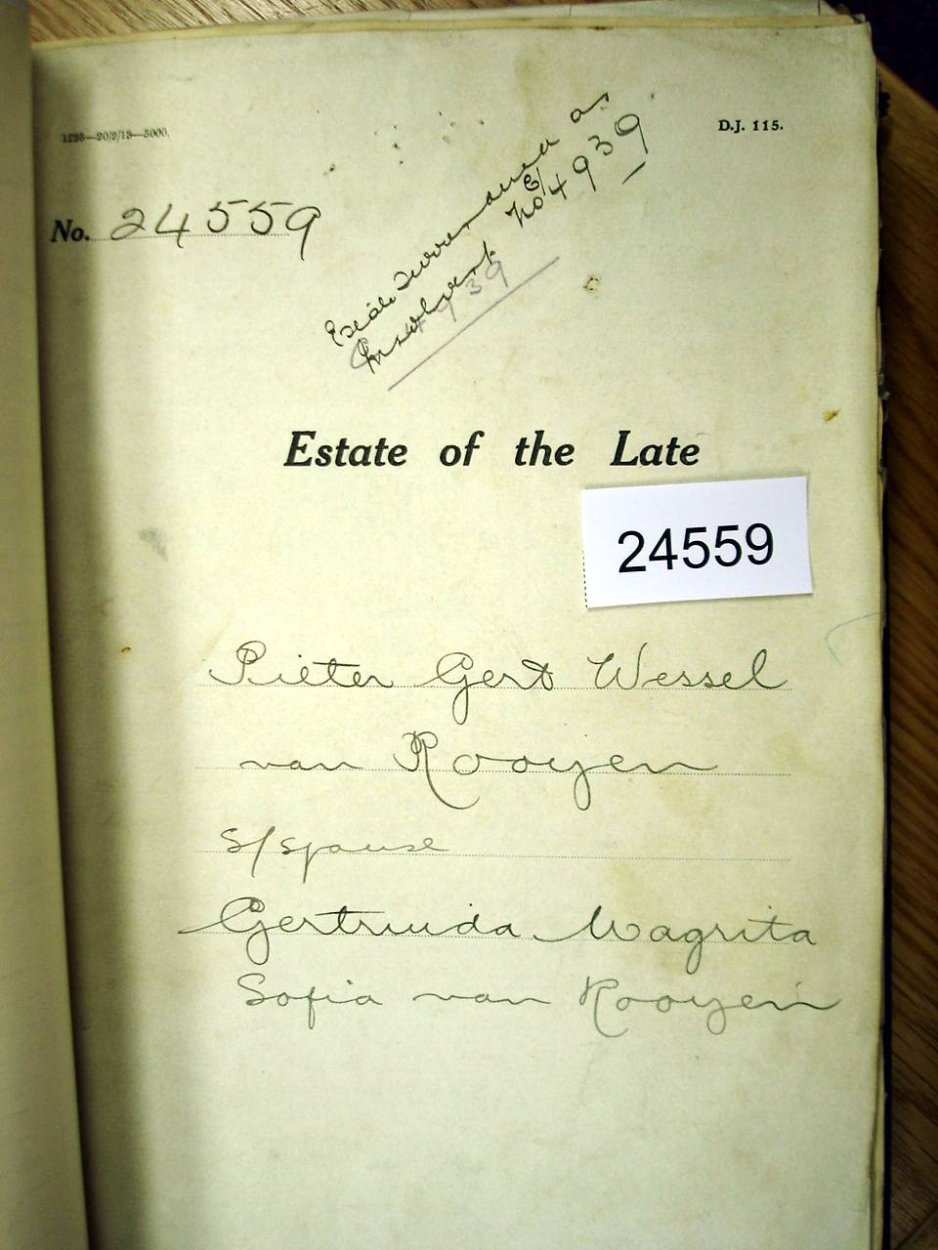 1293—20/2/13—5000.
D.J. 115.
No. 24559
Estate Surrendered as
Insolvent No 4939
4939
Estate of the Late
24559
Pieter Gert Wessel
van Rooyen
S/spouse
Gertruida Magrita
Sofia van Rooyen